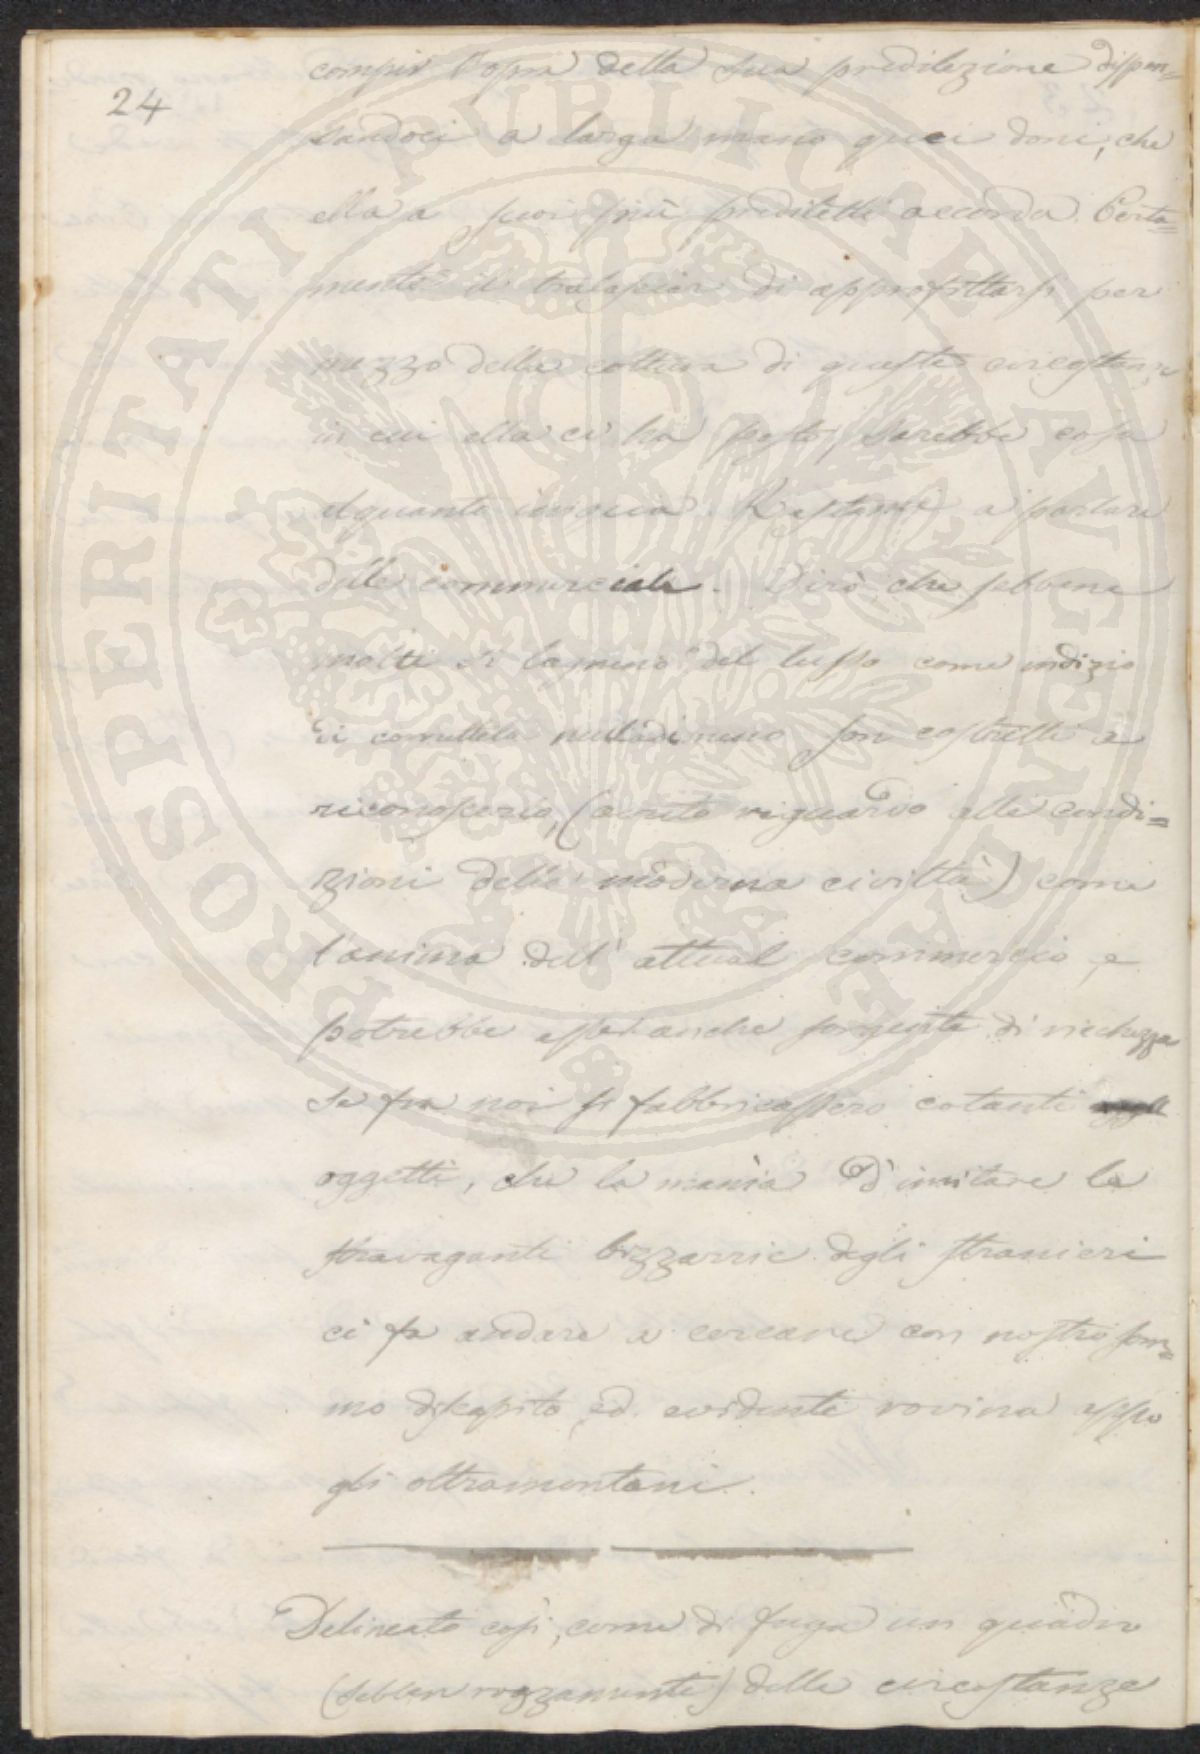 24
compir l'opra della sua predilezione dispen=
sandoci a larga mano quei doni, che
ella a suoi più prediletti accorda. Certa=
mente il tralasciar di approfittarsi per
mezzo della coltura di queste circostanze
in cui ella ci ha posto, sarebbe cosa
alquanto iniqua. Restami a parlare
delle commerciali. Dirò, che sebbene
molti si lagnino del lusso come indizio
di corruttela nulladimeno son costretti a
riconoscerlo, (avuto riguardo alle condi=
zioni della moderna civiltà) come
l'anima dell' attual commercio, e
potrebbe esser anche sorgente di ricchezza
se fra noi si fabbricassero cotanti
oggetti, che la manìa d'imitare le
stravaganti bizzarrie degli stranieri
ci fa andare a cercare con nostro som=
mo discapito, ed evidente rovina appo
gli oltramontani.
Delineato così, come di fuga un quadro
(sebben rozzamente) delle circostanze
PROSPERITATI PUBLICAE AUGENDAE